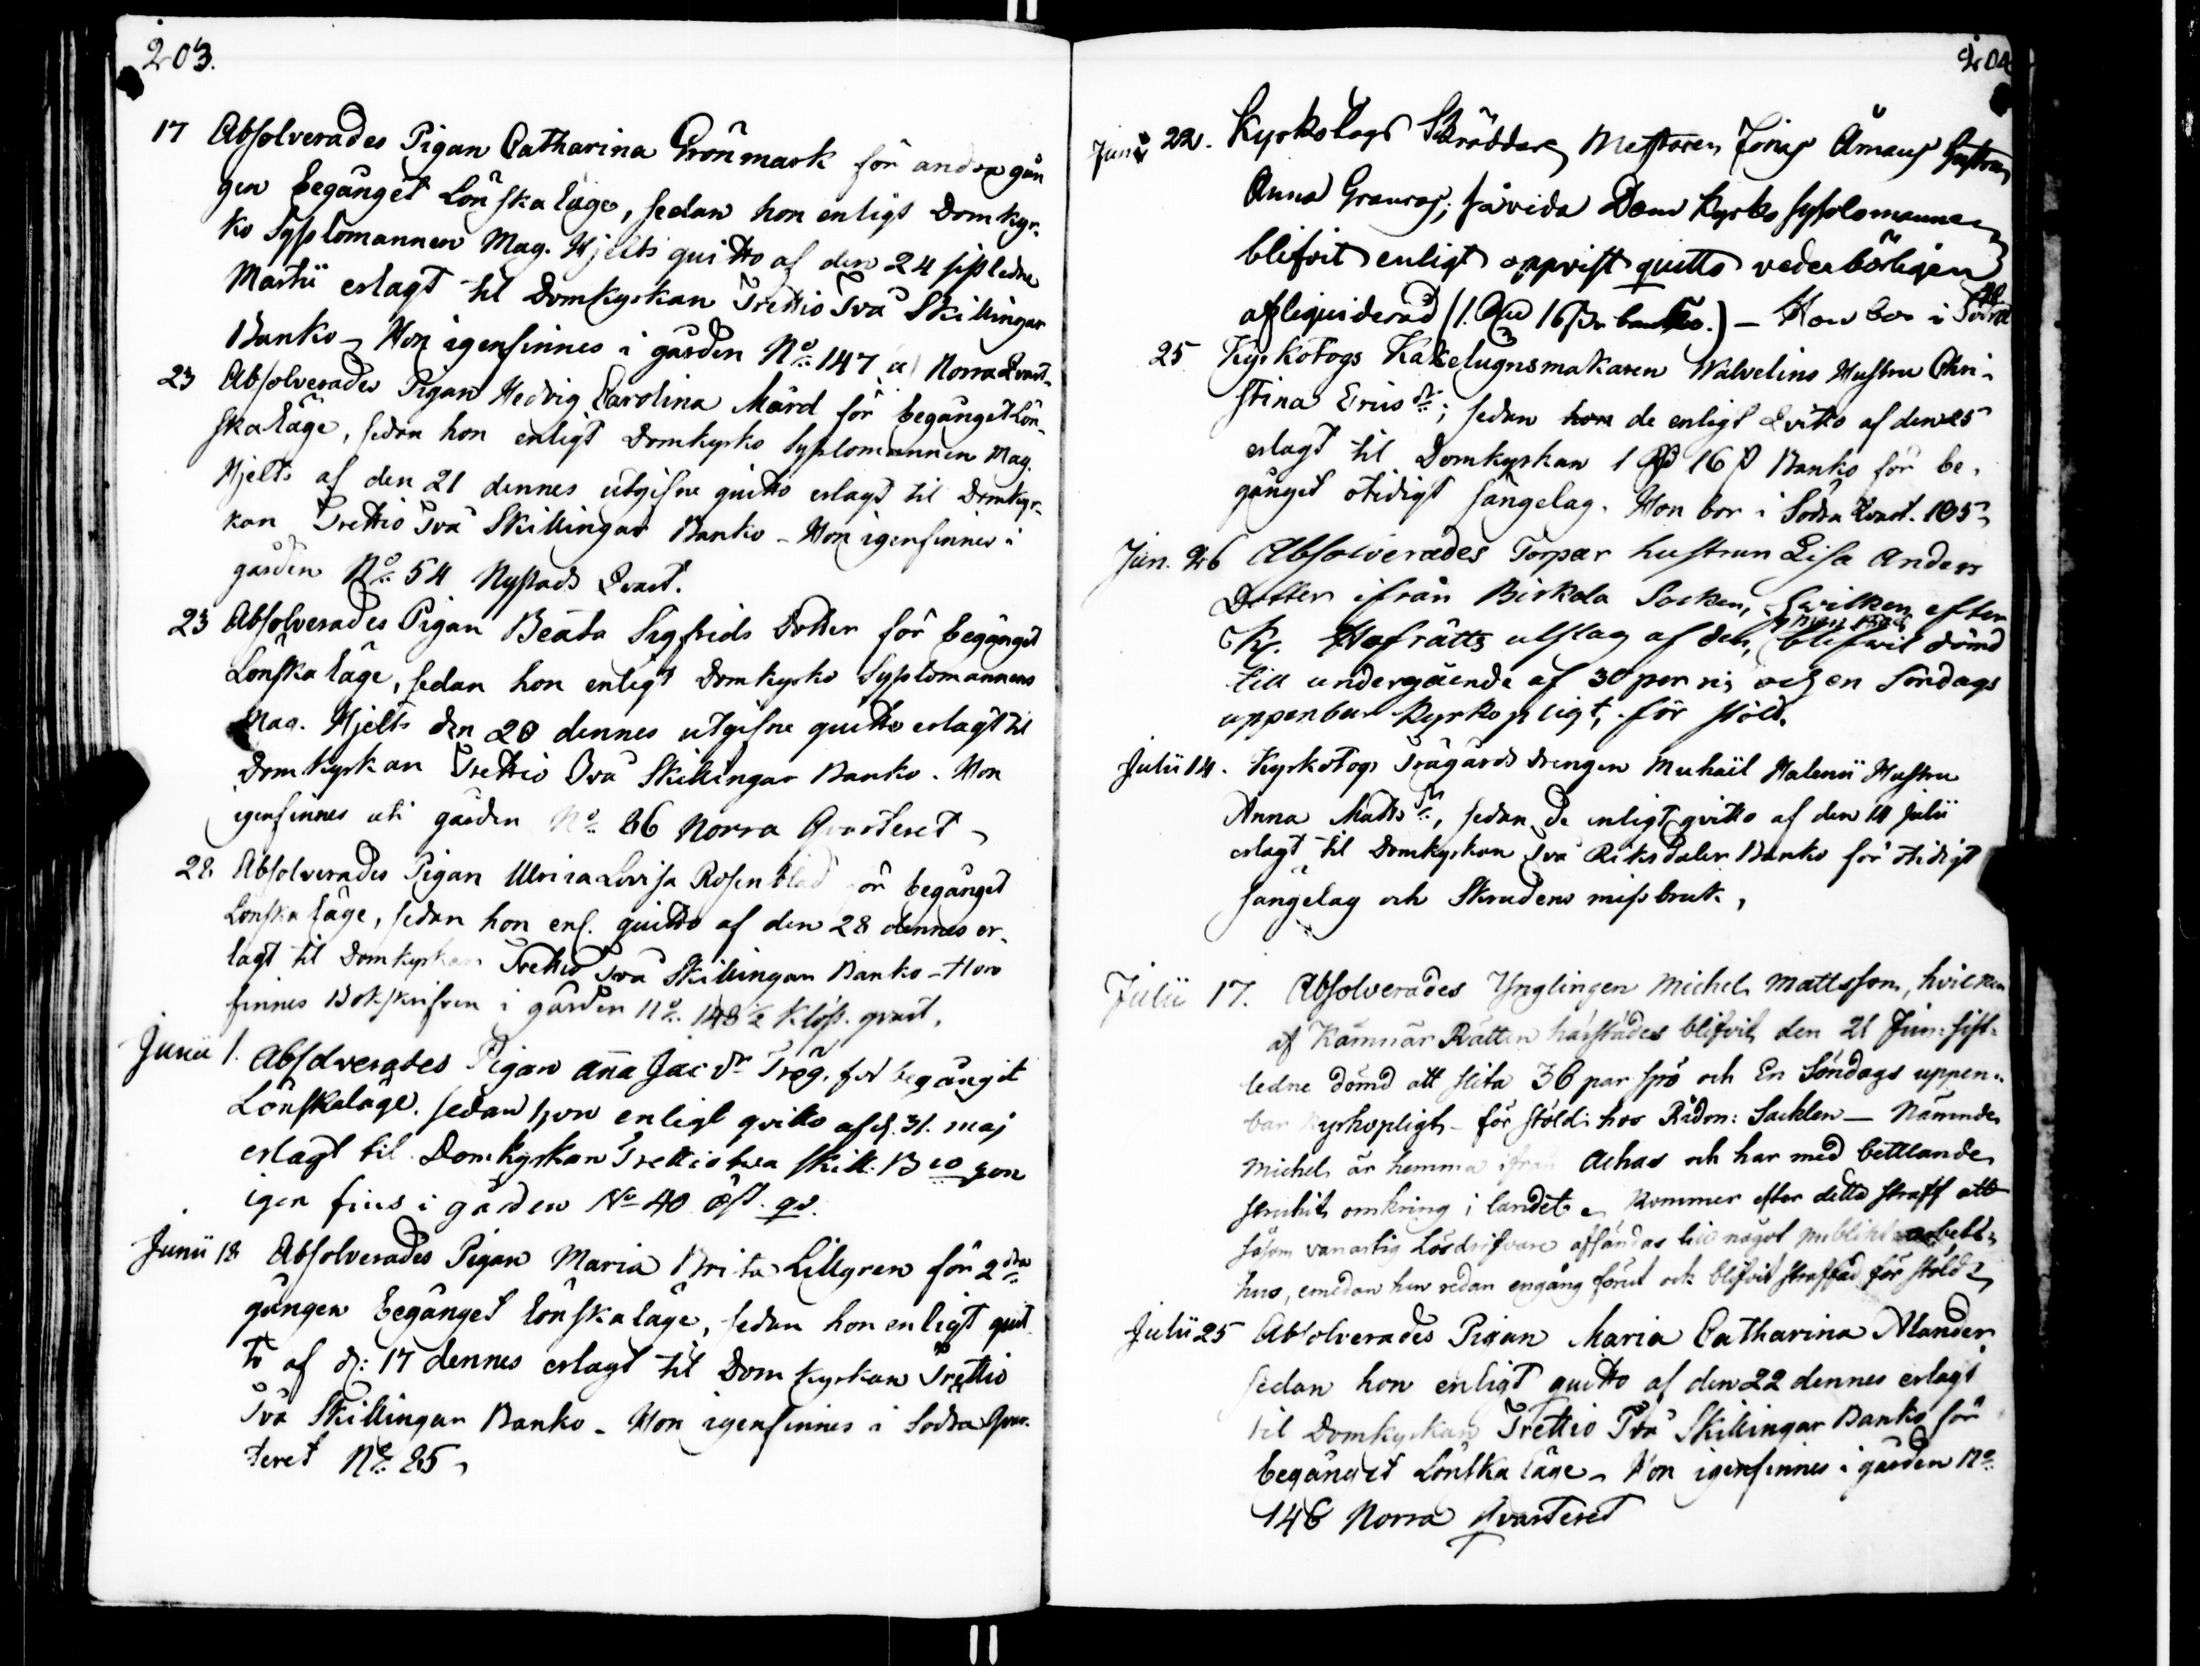 203.
17 Absolverades Pigan Catharina Grönmark för andra gån
gen begånget Lönskaläge, sedan hon enligt Domkyr-
ko Sysslomannen Mag. Hjelts quitto af den 24 sistledne
Martii erlagt til Domkyrkan Trettio Två Skillingar
Banko – Hon igenfinnes i gården No 147 a) Norra Qvart.
23 Absolverades Pigan Hedvig Carolina Mård för begånget Lön-
skaläge, sedan hon enligt Domkyrko Sysslomannen Mag.
Hjelts af den 21 dennes utgifne quitto erlagt til Domkyr-
kan Trettio Två Skillingar Banko – Hon igenfinnes i
gården No 54 Nystads Qvart.
23 Absolverades Pigan Beata Sigfrids Dotter för begånget
Lönskaläge, sedan hon enligt Domkyrko Sysslomannens
Mag. Hjelts den 20 dennes utgifne quitto erlagt til
Domkyrkan Trettio Två Skillingar Banko. Hon
igenfinnes uti gården No 86 Norra Qvarteret
28 Absolverades Pigan Ulrica Lovisa Rosenblad för begånget
Lönskaläge, sedan hon enl. quitto af den 28 dennes er-
lagt til Domkyrkan Trettio Två Skillingar Banko – Hon
finnes Bokskrifven i gården No 148 1/2 Klost. qvart.
Junii 1. Absolverades Pigan Anna Jac Dr Träg. för begångit
Lönskaläge. sedan hon enligt qvitto af d. 31. maj
erlagt til Domkyrkan Trettiotwa Skill. Bco hon
igen fins i gården No 40 öst. qv.
Junii 18 Absolverades Pigan Maria Brita Lillgren för 2dra
gången begånget Lönskaläge, sedan hon enligt quit
to af d: 17 dennes erlagt til Domkyrkan Trettio
Två Skillingar Banko – Hon igenfinnes i Södra Qvar-
teret No 85
204
Junii 22. Kyrkotogs Skräddare Mestaren Hustru
Anna såvida Dom Kyrko Sysslomannen
blifvit enligt oppvist quitto vederbörligen
afliquiderad (1. Rd 16 s banko.) – Hon bor i Södra
25 Kyrkotogs Kakelugnsmakaren Walvelins Hustru Chri-
stina Erics dr; sedan hon de enligt Qvitto af den 25
erlagt til Domkyrkan 1 Rd 16 s Banko för be-
gånget otidigt sängelag. Hon bor i Södra Qvart. 105
Jun. 26 Absolverades Torpar hustrun Lisa Anders
Dotter ifrån Birkala Socken, hvilken efter
K. Hofrätts utslag af den, blifwit dömd
till undergående af 30 par ris och en Söndags
uppenbar Kyrkopligt, för stöld.
Julii 14. Kyrkotogs Trägårds drengen Michaël Halenii Hustru
Anna Mats dr, sedan de enligt qvitto af den 14 Julii
erlagt til Domkyrkan Två Riksdaler Banko för otidigt
sängelag och Skrudens missbruk,
Julii 17. Absolverades Ynglingen Michel Mattsson, hvilken
af Kämnär Rätten härstädes blifvit den 21 Jun: sist-
ledne dömd att slita 36 par spö och En Söndags uppen-
bar kyrkopligt – för stöld hos Rådm: Sacklen – Nämnde
Michel är hemma ifrån Achas och har med bettlande
strukit omkring i landet kommer efter detta straff att
såsom vanartig Lösdrifvare affändas till något publikt arbets-
hus, emedan han redan engång förut ock blifvit straffad för stöld
Julii 25 Absolverades Pigan Maria Catharina Alander
sedan hon enligt quitto af den 22 dennes erlagt
til Domkyrkan Trettio Två Skillingar Banko för
begånget Lönskaläge – Hon igenfinnes i gården No
146 Norra Qvarteret